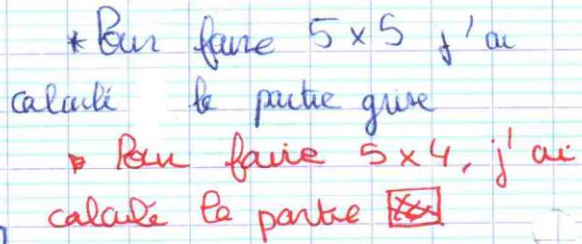 * Pour faire 5 × 5 j'ai
calculé la partie grise
* Pour faire 5 × 4, j'ai
calculé la partie